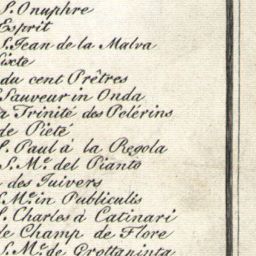 S. Onuphre
Esprit
S. Jean de la Malva
Sixte
du cent Prêtres
Sauveur in Onda
a Trinité des Pelerins
de Pieté
S. Paul à la Regola
S. Me. del Pianto
des Juivers
Me. in Publiculis
S. Charles à Catinari
le Champ de Flore
S. Me. de Grottapinta